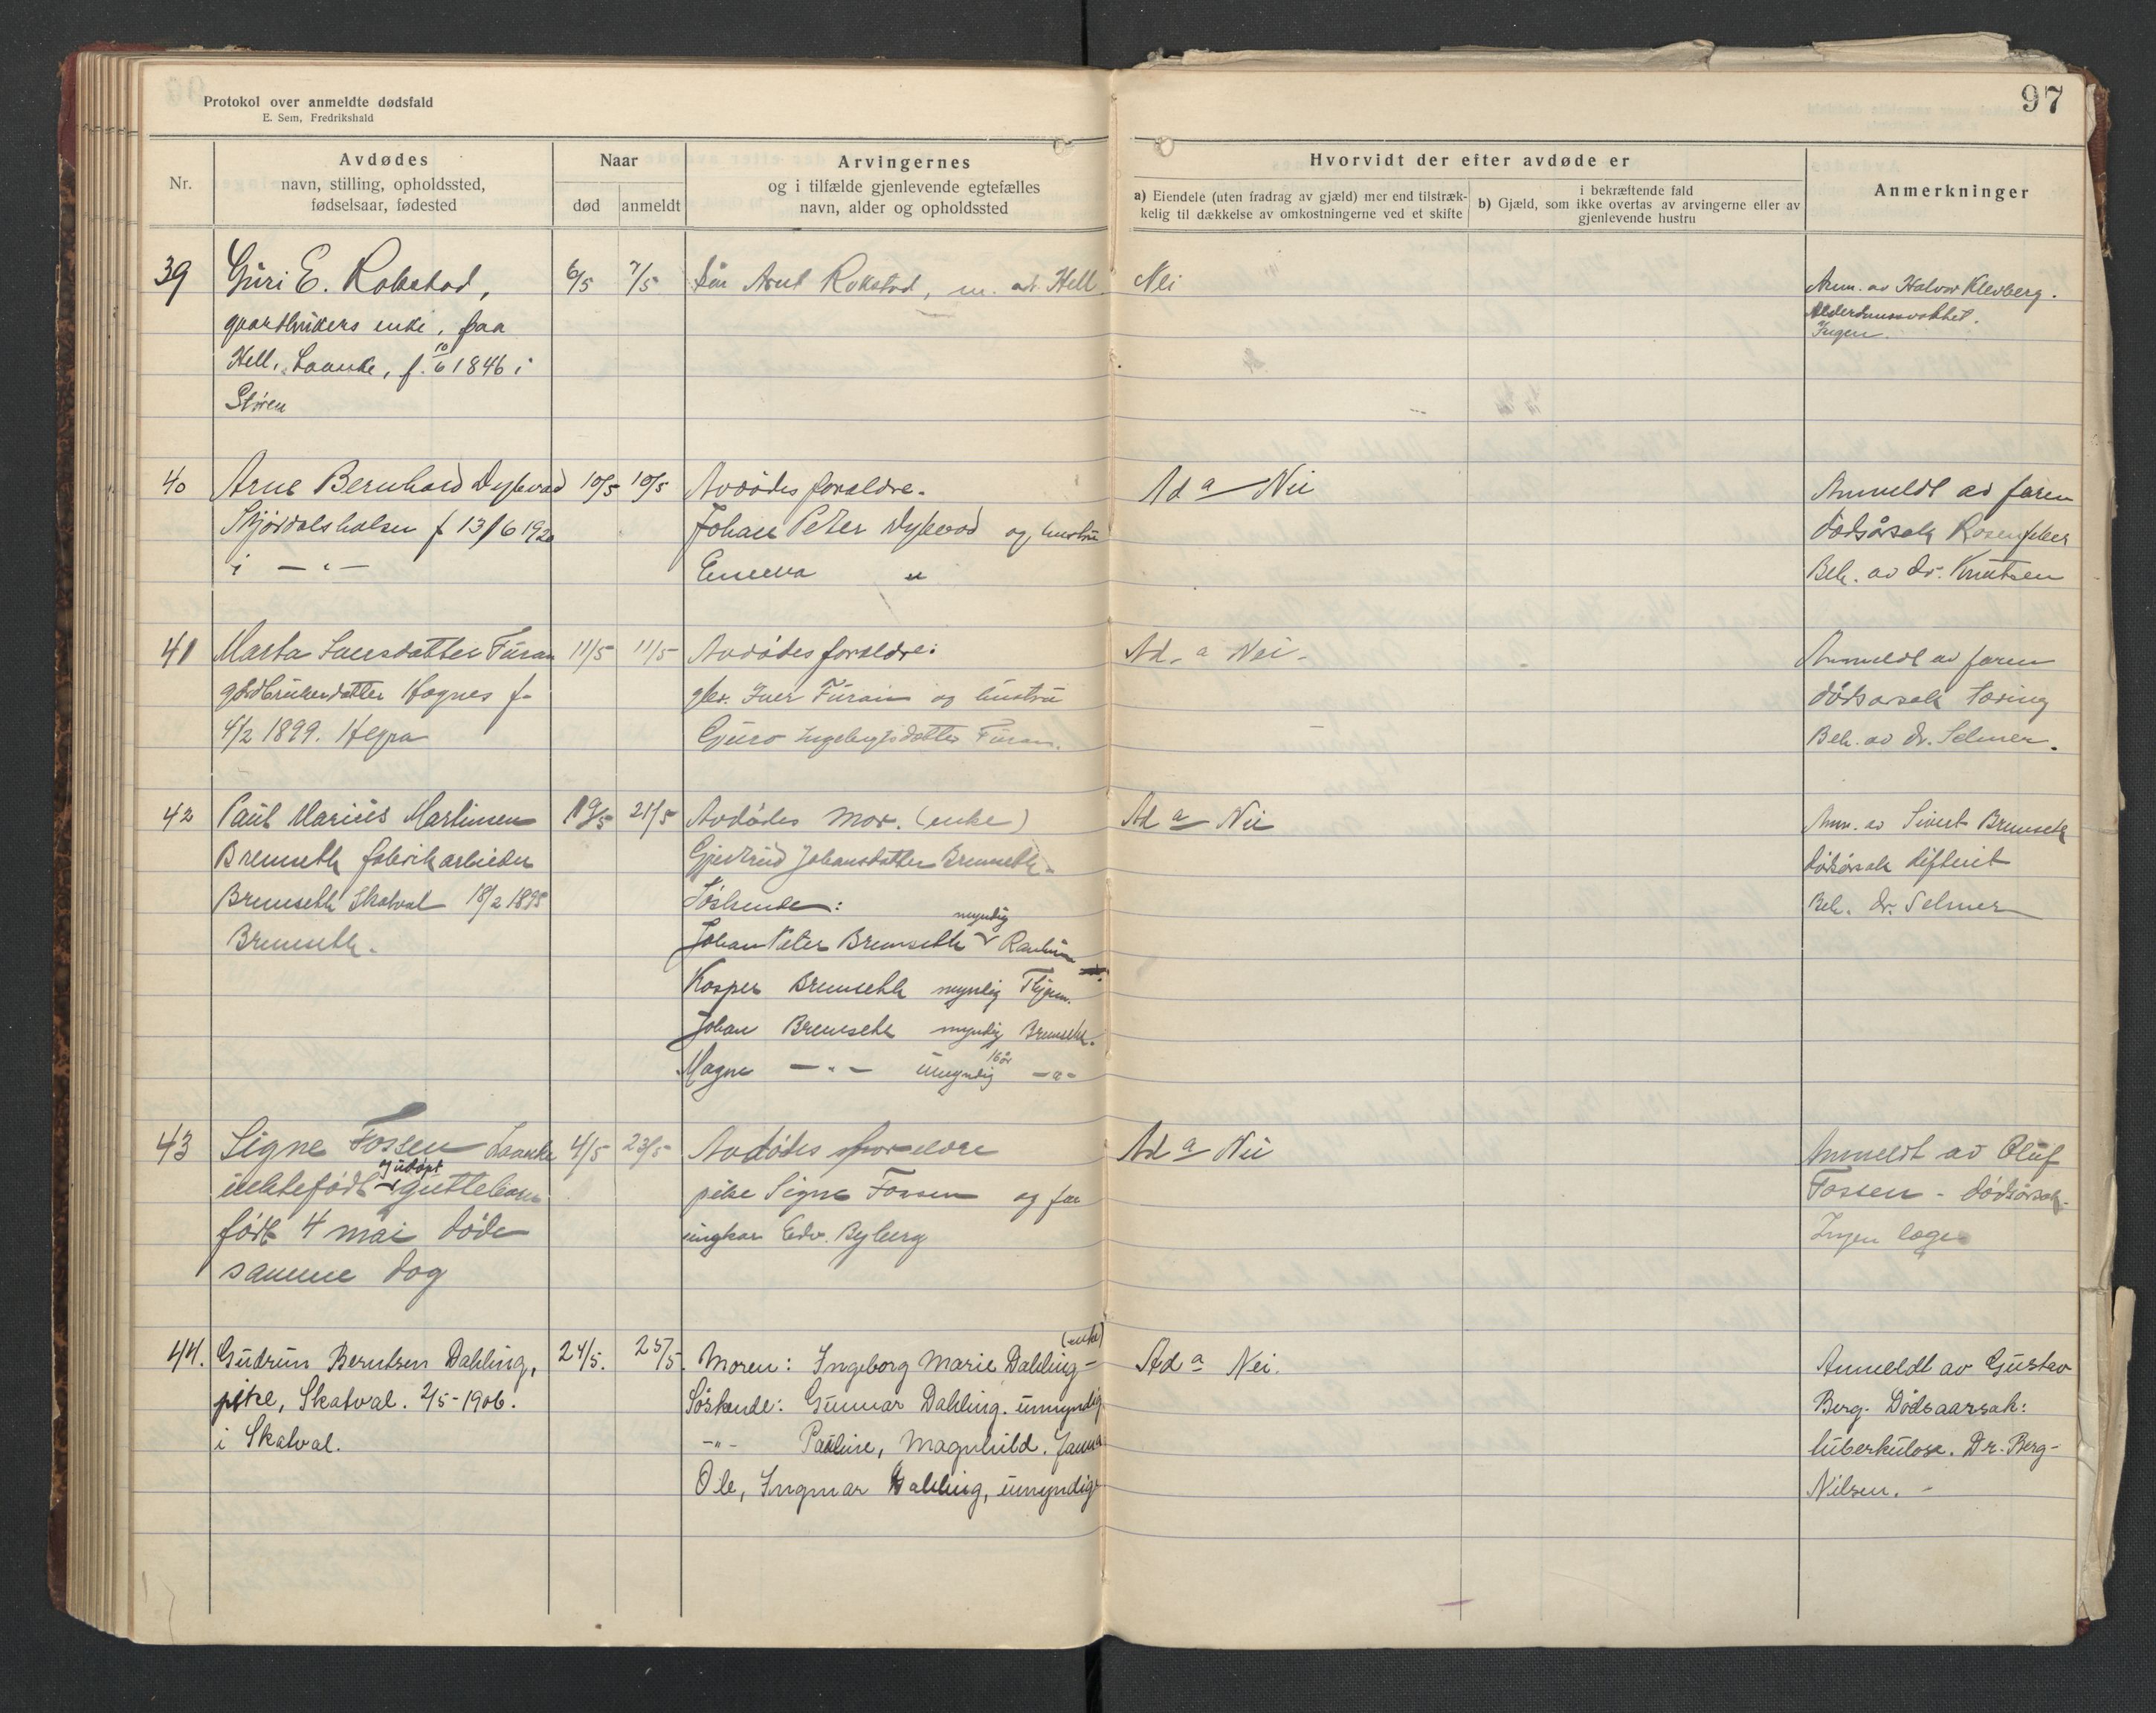 Protokol over anmeldte dødsfald
E. Sem, Fredrikshald
97
Nr.
Avdødes
navn, stilling, opholdssted,
fødselsaar, fødested
Naar
død
anmeldt
Arvingernes
og i tilfælde gjenlevende egtefælles
navn, alder og opholdssted
Hvorvidt der efter avdøde er
a) Eiendele (uten fradrag av gjæld) mer end tilstræk-
kelig til dækkelse av omkostningerne ved et skifte
i bekræftende fald
b) Gjæld, som ikke overtas av arvingerne eller av
gjenlevende hustru
Anmerkninger
39 Guri E. Rokstad, 6/5 7/5 Søn Arnt Rokstad, m. ad. Hell Nei Anm. av Halvor Klevberg.
gaardbrukers enke, paa Alderdomssvakhet.
Hell, Laanke, f. 10/6 1846 i Ingen
Støren
40 Arne Bernhard Dybvad 10/5 10/5 Avdødes forældre. Ad a Nei Anmeldt av faren
Stjørdalshalsen f 13/6 1920 Johan Peter Dybvad og hustru dødsårsak Rosenfeber
i - " - " Beh. av dr. Knutsen
41 Marta Iversdatter Furan 11/5 11/5 Avdødes forældre: Ad. a Nei. Anmeldt av faren
gbr. Iver Furan og hustru dødsårsak tæring
4/2 1899. Hegra Guro Ingebrigtsdatter Furan. Beh. av Dr. Selmer.
42 Paul Marius Martinsen 19/5 21/5 Avdødes mor. (enke) Ad a Nei Anm. av Sivert Bremseth
Bremseth fabrikarbeider Gjertrud Johansdatter Bremseth. dødsårsak difterit
Bremseth Skatval 18/2 1895 Søskende: Beh. Dr. Selmer
Bremseth. Johan Peter Bremseth myndig
Kasper Bremseth myndig
Johan Bremseth myndig Bremseth.
Magne - " - umyndig 16 år - " -
43 Signe Fossen Laanke 4/5 23/5 Avdødes forældre Ad a Nei Anmeldt av Oluf
uektefødt og udøpt guttebarn pike Signe Fossen og far Fossen - dødsårsak
født 4 mai døde ungkar Edv. Byberg Ingen læge
samme dag
44. Gudrun Berntsen Dahling, 24/5. 25/5. Moren: Ingeborg Marie Dahling - (enke) Ad a Nei. Anmeldt av Gustav
pike, Skatval. 2/5-1906. Søskende: Gunnar Dahling. umyndig Berg. Dødsaarsak:
i Skatval. - " - Pauline, Magnhild. Janna tuberkulose. Dr. Berg-
Ole, Ingmar Dahling, umyndige Nilsen. -